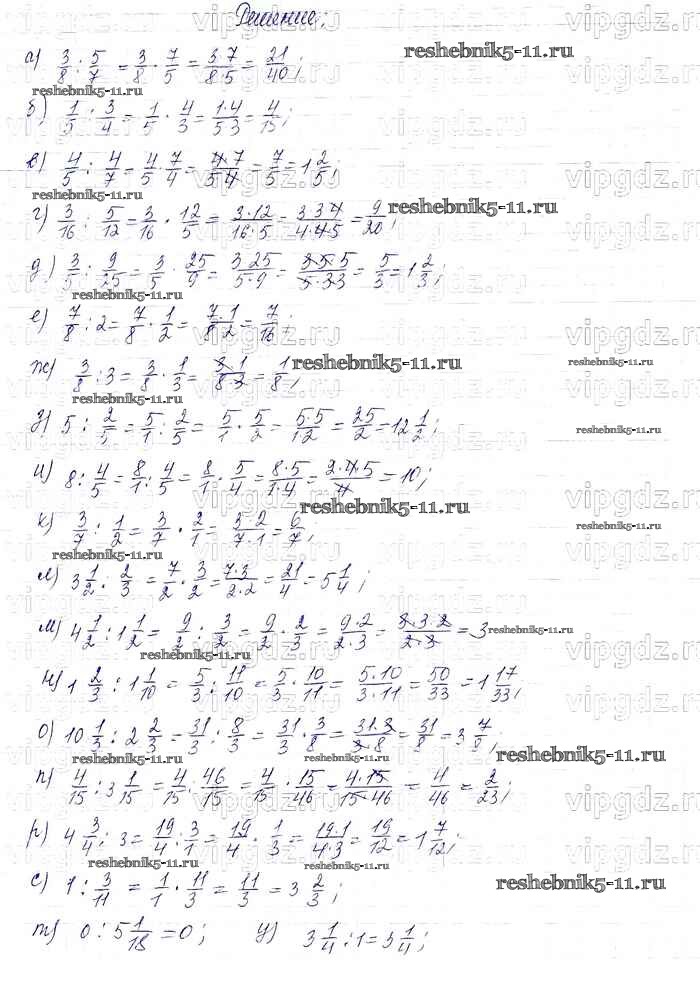 Решение;
а) 3/8 : 5/7 = 3/8 · 7/5 = 3·7/8·5 = 21/40;
reshebnik5-11.ru
reshebnik5-11.ru
б) 1/5 : 3/4 = 1/5 · 4/3 = 1·4/5·3 = 4/15;
в) 4/5 : 4/7 = 4/5 · 7/4 = 4·7/5·4 = 7/5 = 1 2/5;
reshebnik5-11.ru
г) 3/16 : 5/12 = 3/16 · 12/5 = 3·12/16·5 = 3·3·4/4·4·5 = 9/20;
reshebnik5-11.ru
reshebnik5-11.ru
д) 3/5 : 9/25 = 3/5 · 25/9 = 3·25/5·9 = 3·5·5/5·3·3 = 5/3 = 1 2/3;
reshebnik5-11.ru
е) 7/8 : 2 = 7/8 · 1/2 = 7·1/8·2 = 7/16;
ж) 3/8 : 3 = 3/8 · 1/3 = 3·1/8·3 = 1/8;
reshebnik5-11.ru
reshebnik5-11.ru
reshebnik5-11.ru
з) 5 : 2/5 = 5/1 : 2/5 = 5/1 · 5/2 = 5·5/1·2 = 25/2 = 12 1/2;
reshebnik5-11.ru
и) 8 : 4/5 = 8/1 : 4/5 = 8/1 · 5/4 = 8·5/1·4 = 2·4·5/4 = 10;
reshebnik5-11.ru
к) 3/7 : 1/2 = 3/7 · 2/1 = 3·2/7·1 = 6/7;
reshebnik5-11.ru
reshebnik5-11.ru
л) 3 1/2 : 2/3 = 7/2 · 3/2 = 7·3/2·2 = 21/4 = 5 1/4;
м) 4 1/2 : 1 1/2 = 9/2 : 3/2 = 9/2 · 2/3 = 9·2/2·3 = 3·3·2/2·3 = 3
reshebnik5-11.ru
н) 1 2/3 : 1 1/10 = 5/3 : 11/10 = 5/3 · 10/11 = 5·10/3·11 = 50/33 = 1 17/33;
о) 10 1/3 : 2 2/3 = 31/3 : 8/3 = 31/3 · 3/8 = 31·3/3·8 = 31/8 = 3 7/8,
reshebnik5-11.ru
reshebnik5-11.ru
reshebnik5-11.ru
п) 4/15 : 3 1/15 = 4/15 : 46/15 = 4/15 · 15/46 = 4·15/15·46 = 4/46 = 2/23;
р) 4 3/4 : 3 = 19/4 : 3/1 = 19/4 · 1/3 = 19·1/4·3 = 19/12 = 1 7/12;
reshebnik5-11.ru
reshebnik5-11.ru
с) 1 : 3/11 = 1/1 · 11/3 = 11/3 = 3 2/3;
reshebnik5-11.ru
т) 0 : 5 1/18 = 0; у) 3 1/4 : 1 = 3 1/4;
reshebnik5-11.ru
vipgdz.ru